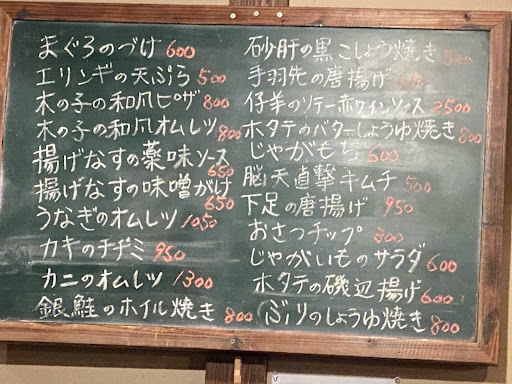 まぐろのづけ 600
エリンギの天ぷら 500
木の子の和風ピザ 800
木の子の和風オムレツ 800
揚げなすの薬味ソース 650
揚げなすの味噌がけ 650
うなぎのオムレツ 1050
カキのチヂミ 950
カニのオムレツ 1300
銀鮭のホイル焼き 800
砂肝の黒こしょう焼き
手羽先の唐揚げ
仔羊のソテー赤ワインソース 2500
ホタテのバターしょうゆ焼き 800
じゃがもち 600
脳天直撃キムチ 500
下足の唐揚げ 950
おさつチップ 300
じゃがいものサラダ 600
ホタテの磯辺揚げ 600
ぶりのしょうゆ焼き 800